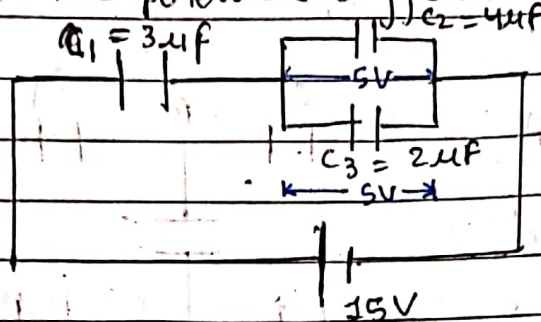 C2 = 4µF
C1 = 3µF
5V
C3 = 2µF
5V
15V